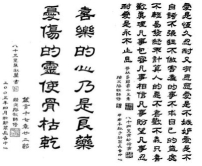 愛是恆久忍耐又有恩慈愛是不嫉妒愛是不
自誇不張狂不作害羞的事不求自己的益處不
輕易發怒不計算人的惡不喜歡不義只喜
歡真理凡事包容凡事相信凡事盼望凡事忍
耐愛是永不止息
喜樂的心乃是良藥
憂傷的靈使骨枯乾